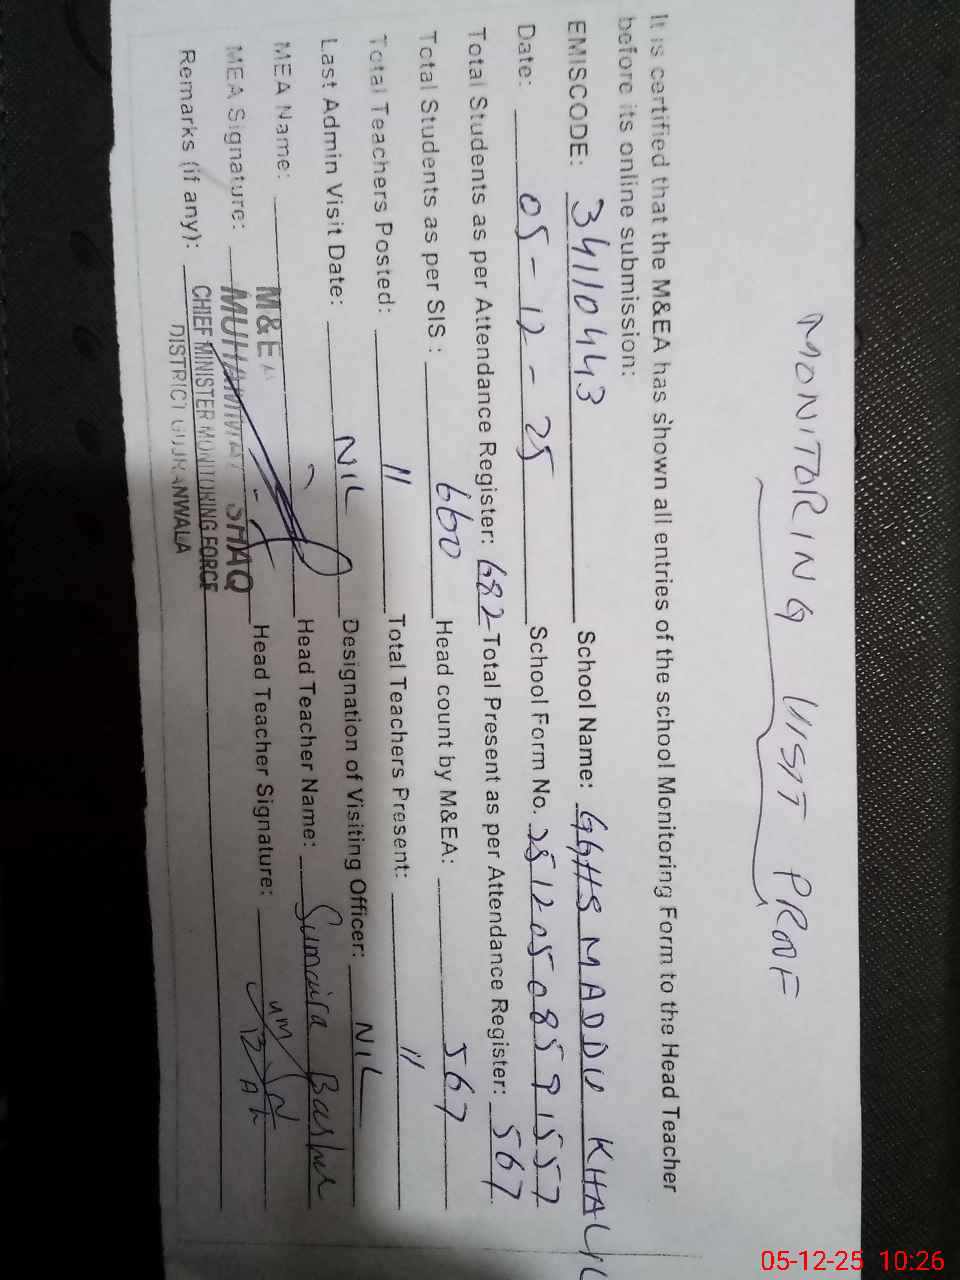 MONITORING VISIT PROOF
It is certified that the M&EA has shown all entries of the school Monitoring Form to the Head Teacher
before its online submission:
EMISCODE: 34110443 School Name: GGHS MADDU KHALIL
Date: 05-12-25 School Form No. 25120508591557
Total Students as per Attendance Register: 682 Total Present as per Attendance Register: 567
Total Students as per SIS: 660 Head count by M&EA: 567
Total Teachers Posted: 11 Total Teachers Present: 11
Last Admin Visit Date: NIL Designation of Visiting Officer: NIL
MEA Name: M&EA Head Teacher Name: Sumaira Bashir
MEA Signature: MUHAMMAD ISHAQ Head Teacher Signature:
Remarks (if any): CHIEF MINISTER MONITORING FORCE
DISTRICT GUJRANWALA
05-12-25 10:26